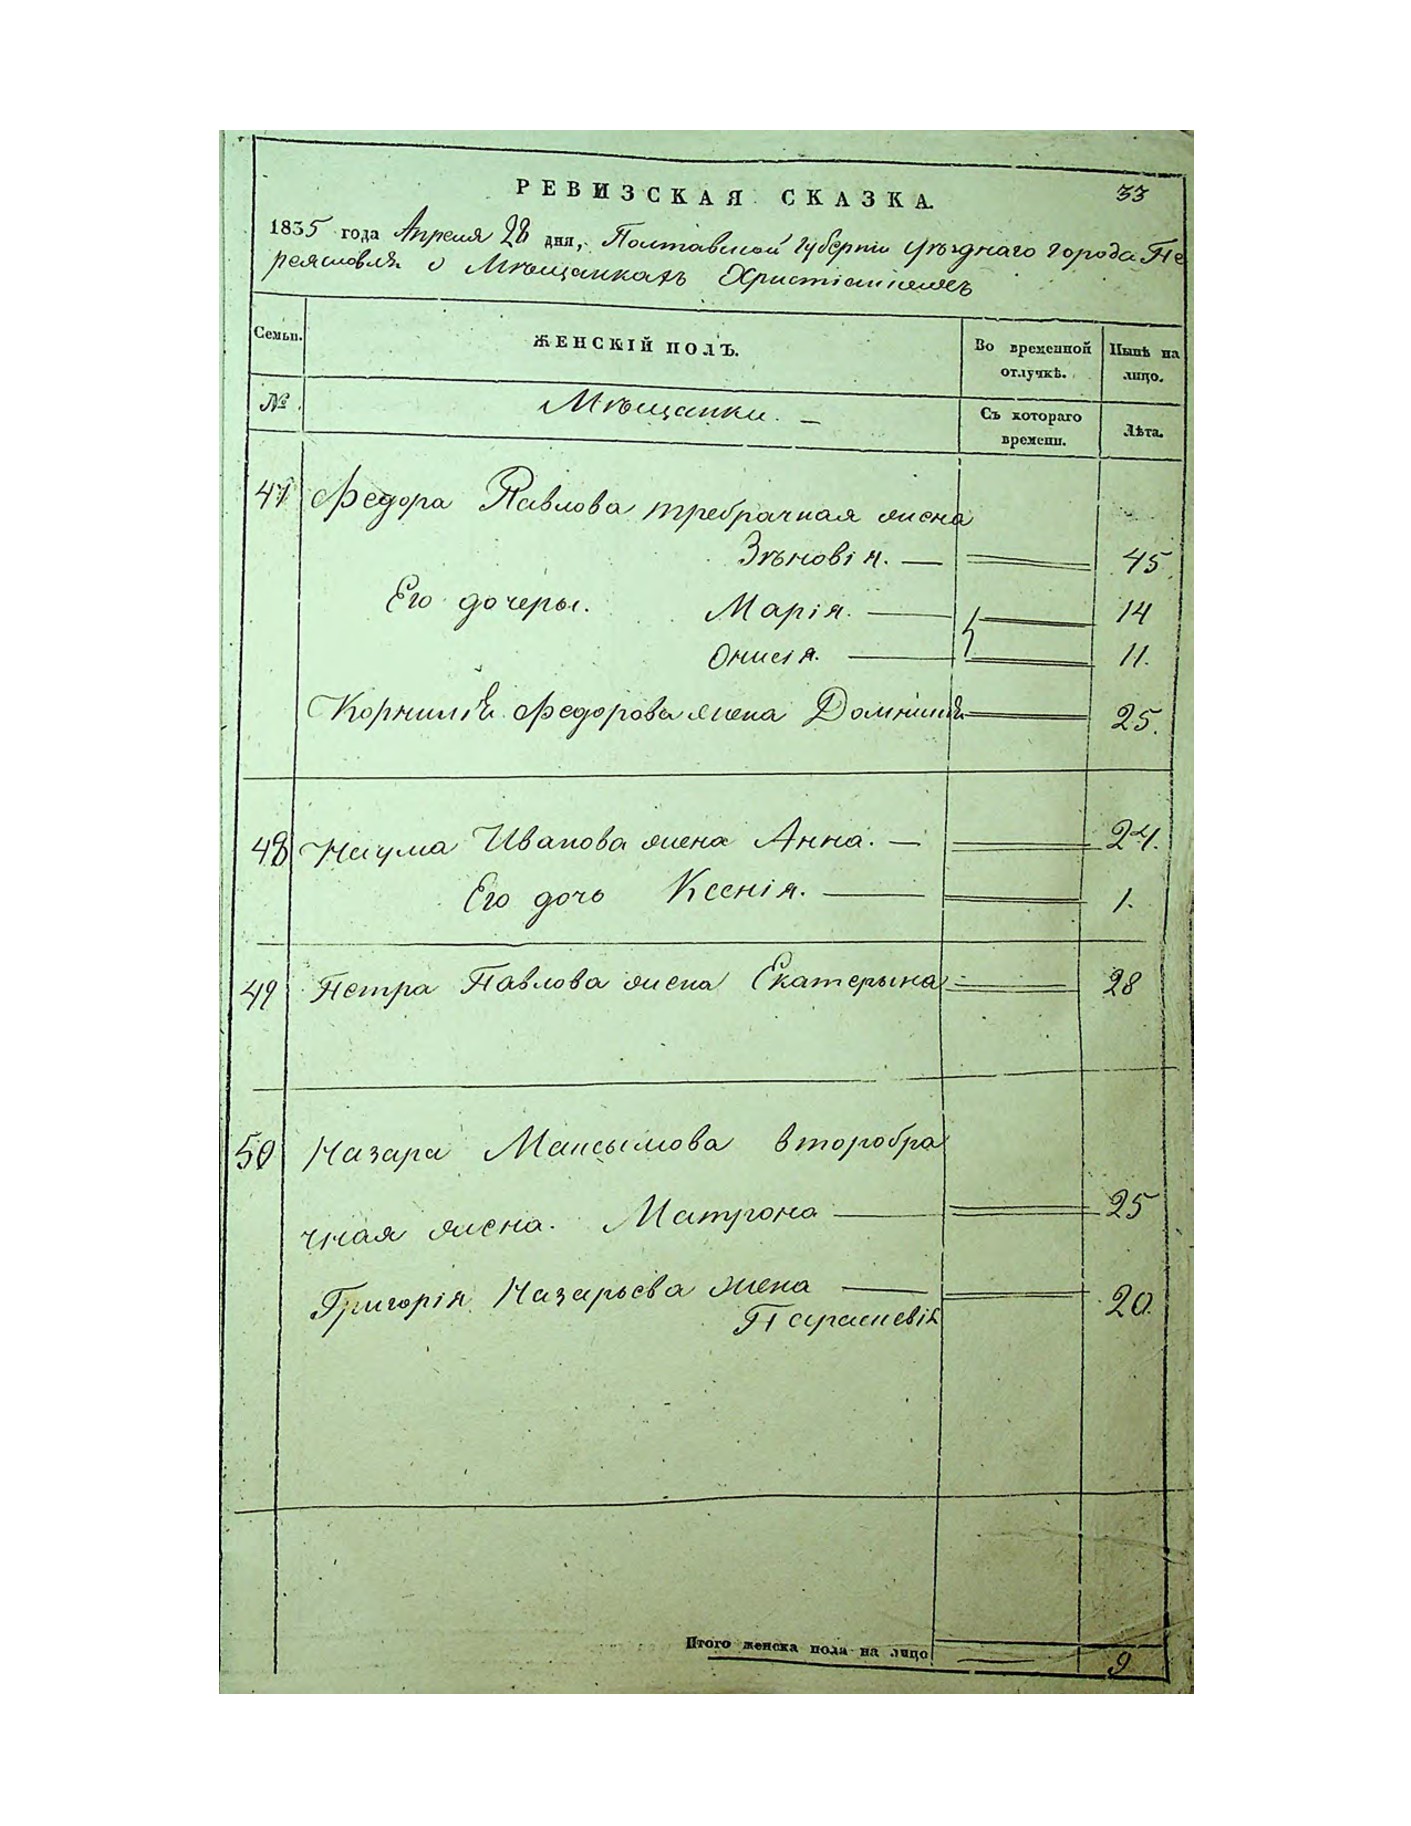 33
РЕВИЗСКАЯ СКАЗКА.
1835 года Апреля 28 дня, Полтавской Губернiи уѣзднаго города Пе
реяславля о Мѣщанкахъ Христiанкахъ
Семьи. ЖЕНСКIЙ ПОЛЪ. Во временной отлучкѣ. Нынѣ на лицо.
№ Мѣщанки. — Съ котораго времени. Лѣта.
47 Федора Павлова требрачная жена
Зѣновiя. — 45.
Его дочеры. Марiя. — 14
Онисiя. — 11.
Корнилiя Федорова жена Домникiя 25.
48 Наума Иванова жена Анна. — 24.
Его дочь Ксенiя. — 1.
49 Петра Павлова жена Екатерына 28
50 Назара Максымова второбра
чная жена. Матрона — 25
Григорiя Назарьева жена — 20.
Параскевiя
Итого женска пола на лицо 9